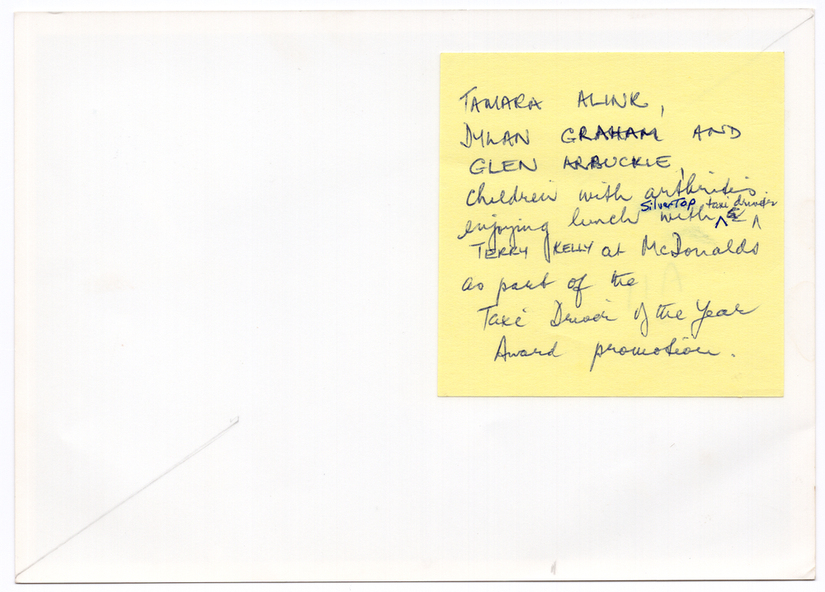 TAMARA ALINK,
DYLAN GRAHAM AND
GLEN ARBUCKLE,
children with arthritis
enjoying lunch with SilverTop taxi driver
TERRY KELLY at McDonalds
as part of the
Taxi Driver of the Year
Award promotion.